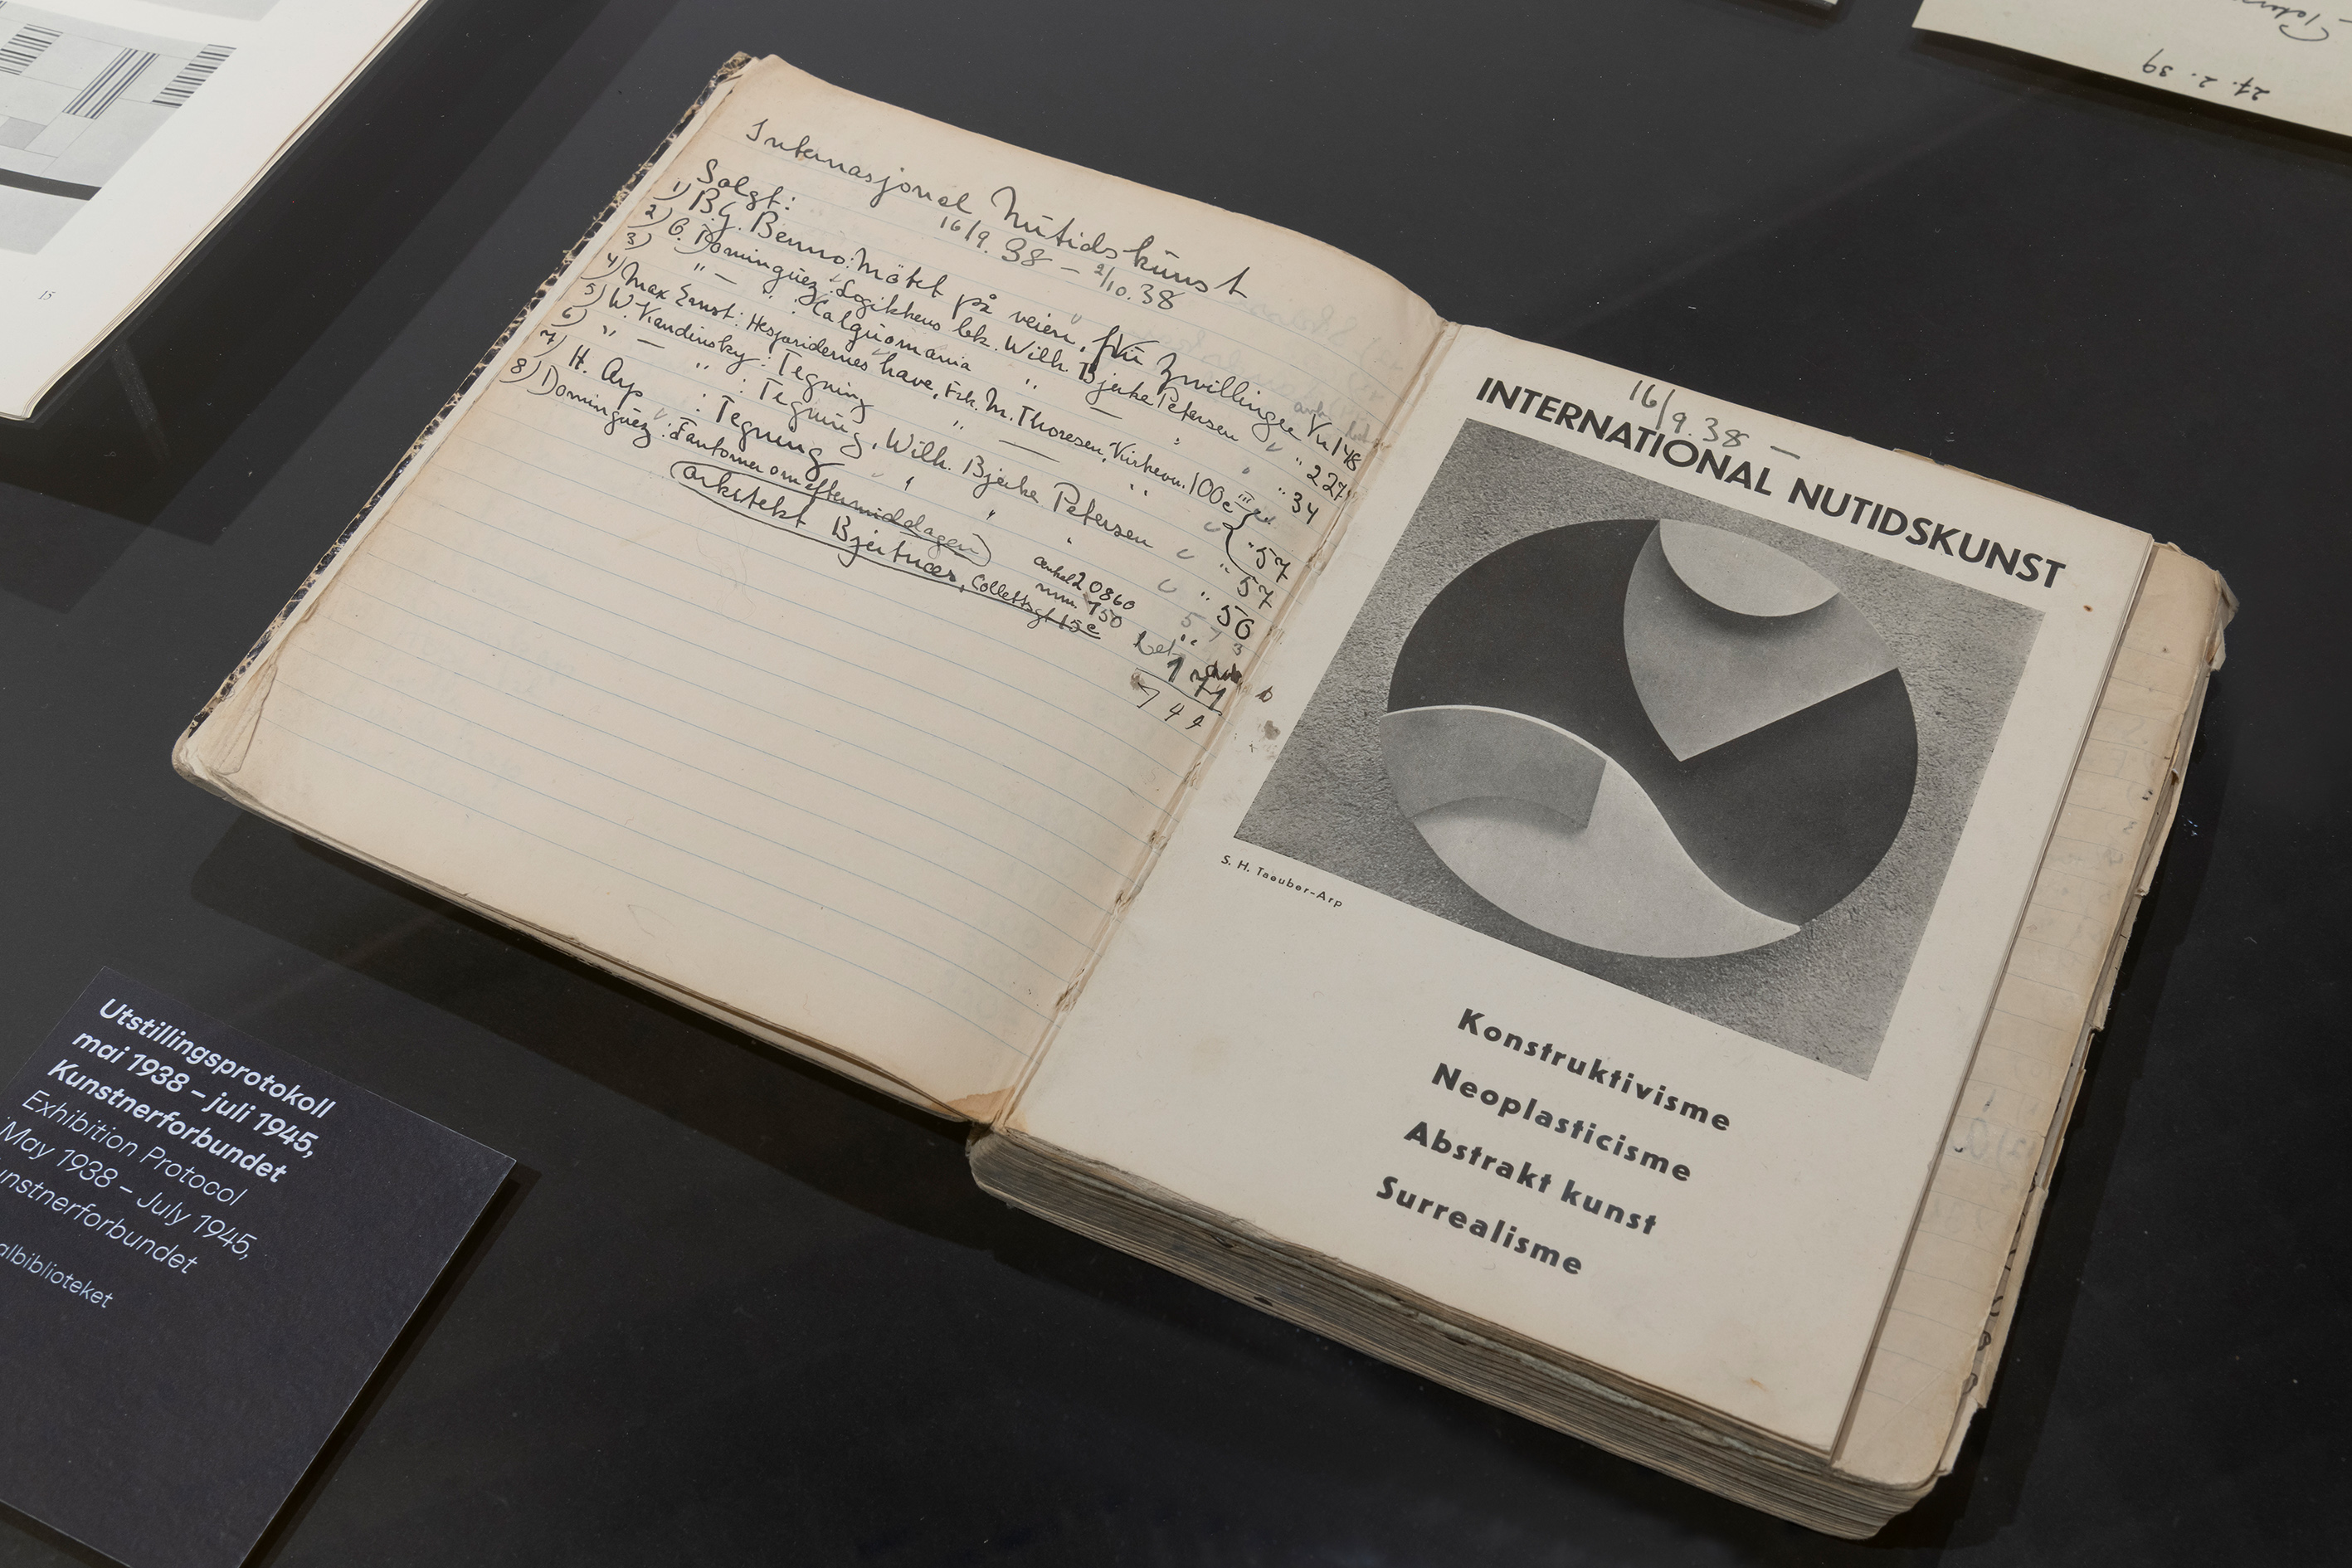 Internasjonal Nutidskunst
16/9. 38 – 2/10. 38
Solgt:
1) B.G. Benno: Mötet på veien, fru Zwillinger Kr 148
2) O. Dominguez: Wilh. Bjerke Petersen " 227
3) " — " : " — " " 34
4) Max Ernst: Hesperidernes have, Frk. M. Thoresen, 100
5) W. Kandinsky : Tegning " — " " 57
6) " — " : Tegning, Wilh. Bjerke Petersen " 57
7) H. Arp : Tegning " " " 56
8) Dominguez: Fantomer om eftermiddagen
arkitekt
20860
750
749
16/9. 38 –
INTERNATIONAL NUTIDSKUNST
S. H. Taeuber-Arp
Konstruktivisme
Neoplasticisme
Abstrakt kunst
Surrealisme
Utstillingsprotokoll
mai 1938 – juli 1945,
Kunstnerforbundet
Exhibition Protocol
May 1938 – July 1945,
unstnerforbundet
albiblioteket
15
27. 2. 39